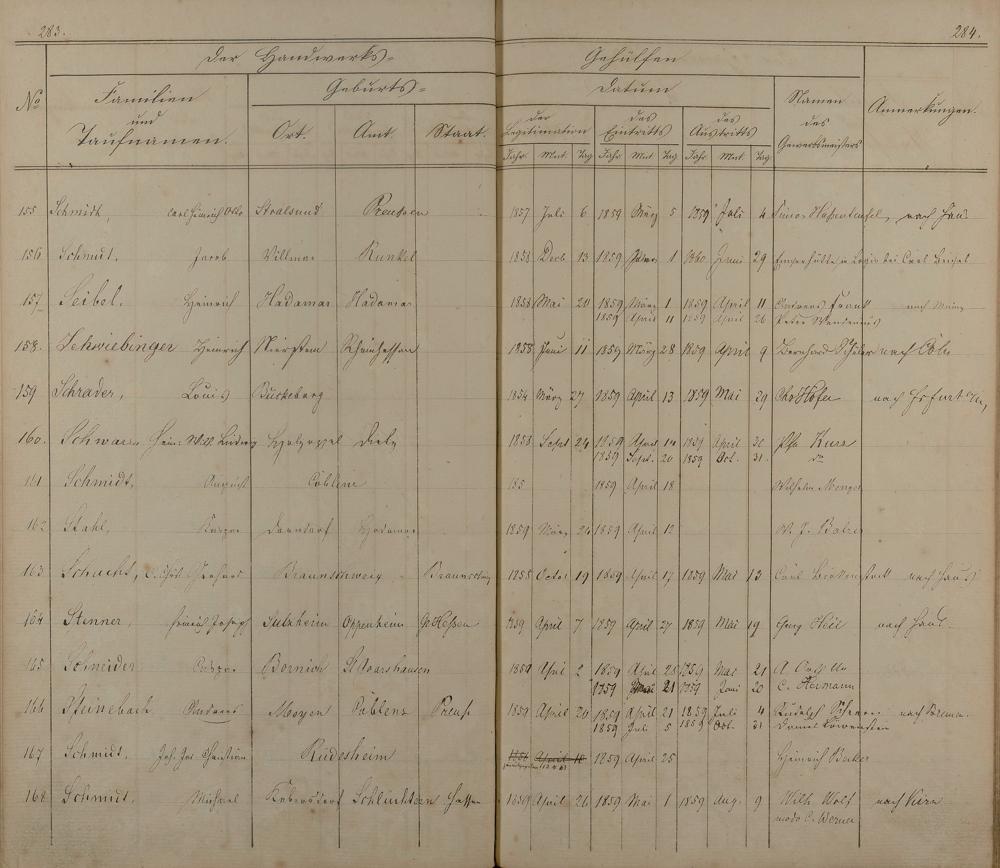 283.
284.
Der Handwerks-
Gehülfen
No
Familien
und
Taufnamen.
Geburts-
Ort.
Amt.
Staat.
Datum
der
Legitimation
des
Eintritts
des
Austritts
Namen
des
Gewerbsmeisters
Anmerkungen.
Jahr Mnt. Tag Jahr Mnt Tag Jahr Mnt. Tag
155 Schmidt, Carl Heinrich Otto Stralsund Preussen 1857 Juli 6 1859 März 5 1859 Juli 4 nach Haus
156 Schmidt. Jacob Villmar Runkel 1858 Decb 13 1859 1 1860 Juni 29
157 Seibel, Heinrich Hadamar Hadamar 1858 Mai 20 1859 März 1 1859 April 11 Andreas Frank nach Mainz
1859 April 11 1859 April 26 Peter
158. Schwiebinger Heinrich Nierstein Rheinhessen 1858 Juni 11 1859 März 28 1859 April 9 Bernhard Schüler nach
159 Schrader, Louis Bückeburg 1854 März 27 1859 April 13 1859 Mai 29 Chr Höfer nach Erfurt
160. Schwarz Heinr. Wilh. Ludwig Diez 1858 Sept 24 1859 April 14 1859 April 30 Kurz
1859 Sept. 20 1859 Oct. 31. do
161 Schmidt, August Coblenz 185 1859 April 18 Wilhelm Menges
162 Stahl, Kaspar Dorndorf Hadamar 1859 März 24 1859 April 12 W. J.
163 Schacht, Braunschweig Braunschwg 1855 Octbr 19 1859 April 17 1859 Mai 13 Carl Birkenstock nach Haus
164 Stenner, Heinrich Joseph Sulzheim Oppenheim Gr Hessen 1859 April 7 1859 April 27 1859 Mai 19 Georg Heil nach Haus.
165 Schneider Caspar Bornich St Goarshausen 1859 April 2 1859 April 25 1859 Mai 21 A
1859 Mai 21 1859 Juni 20 C. Hermann
166 Steinebach Andreas Mayen Coblenz Preuß 1859 April 20 1859 April 21 1859 Juli 4 Rudolph nach
1859 Juli 5 1859 Oct. 31 Daniel Löwenstein
167 Schmidt. Joh. Jos. Christian Rüdesheim April 1859 April 25 Heinrich Becker
168 Schmidt. Michael Schlüchtern Hessen 1859 April 26 1859 Mai 1 1859 Aug. 9 Wilh Wolf nach
modo C. Werner